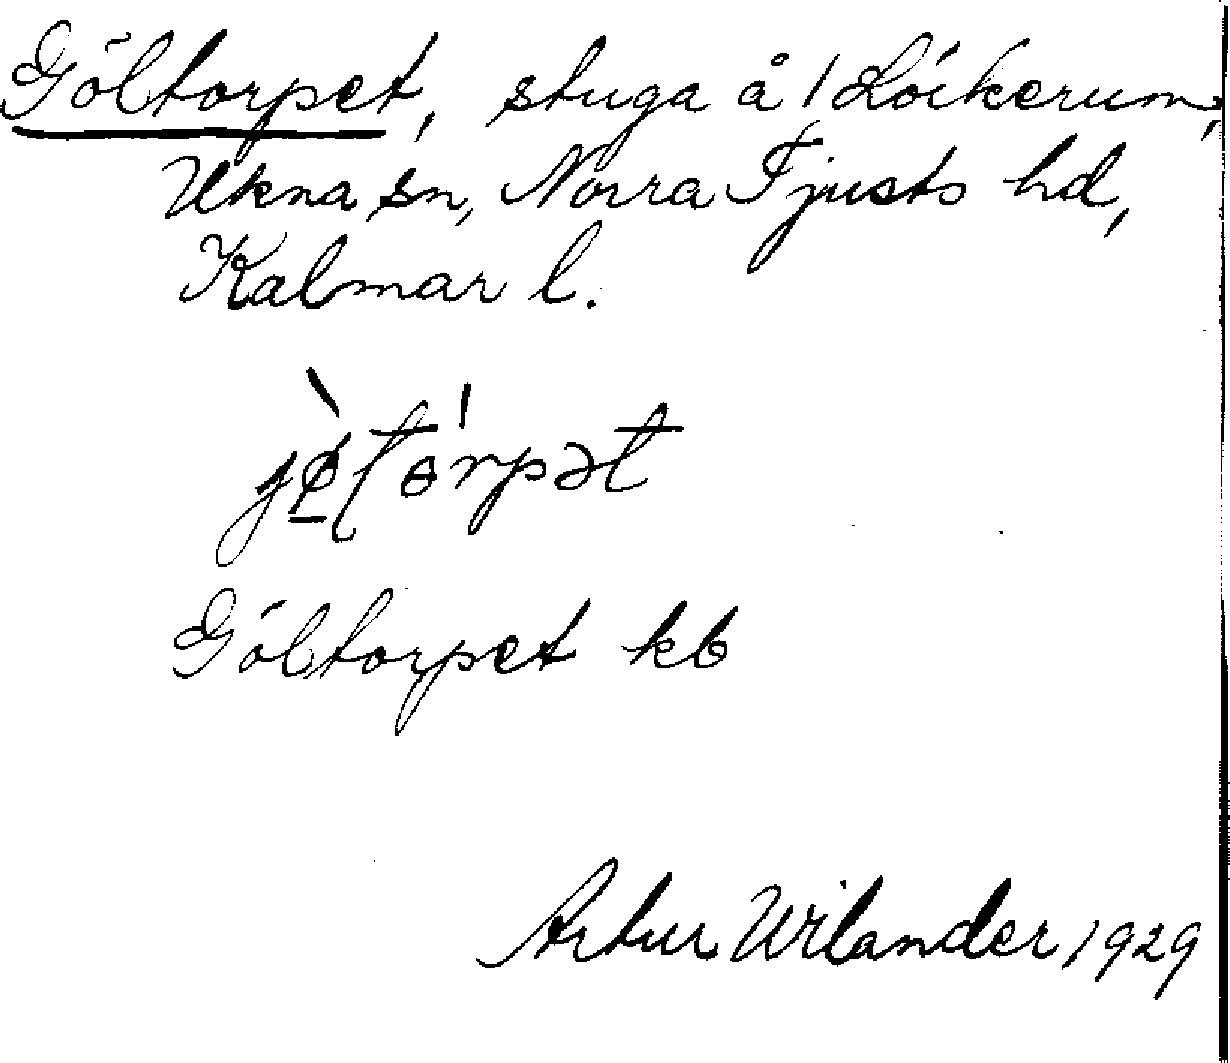 Göltorpet, stuga å 1 Löckerum,
Ukna sn, Norra Tjusts hd,
Kalmar l.
Göltorpet kb
Artur Wilander 1929